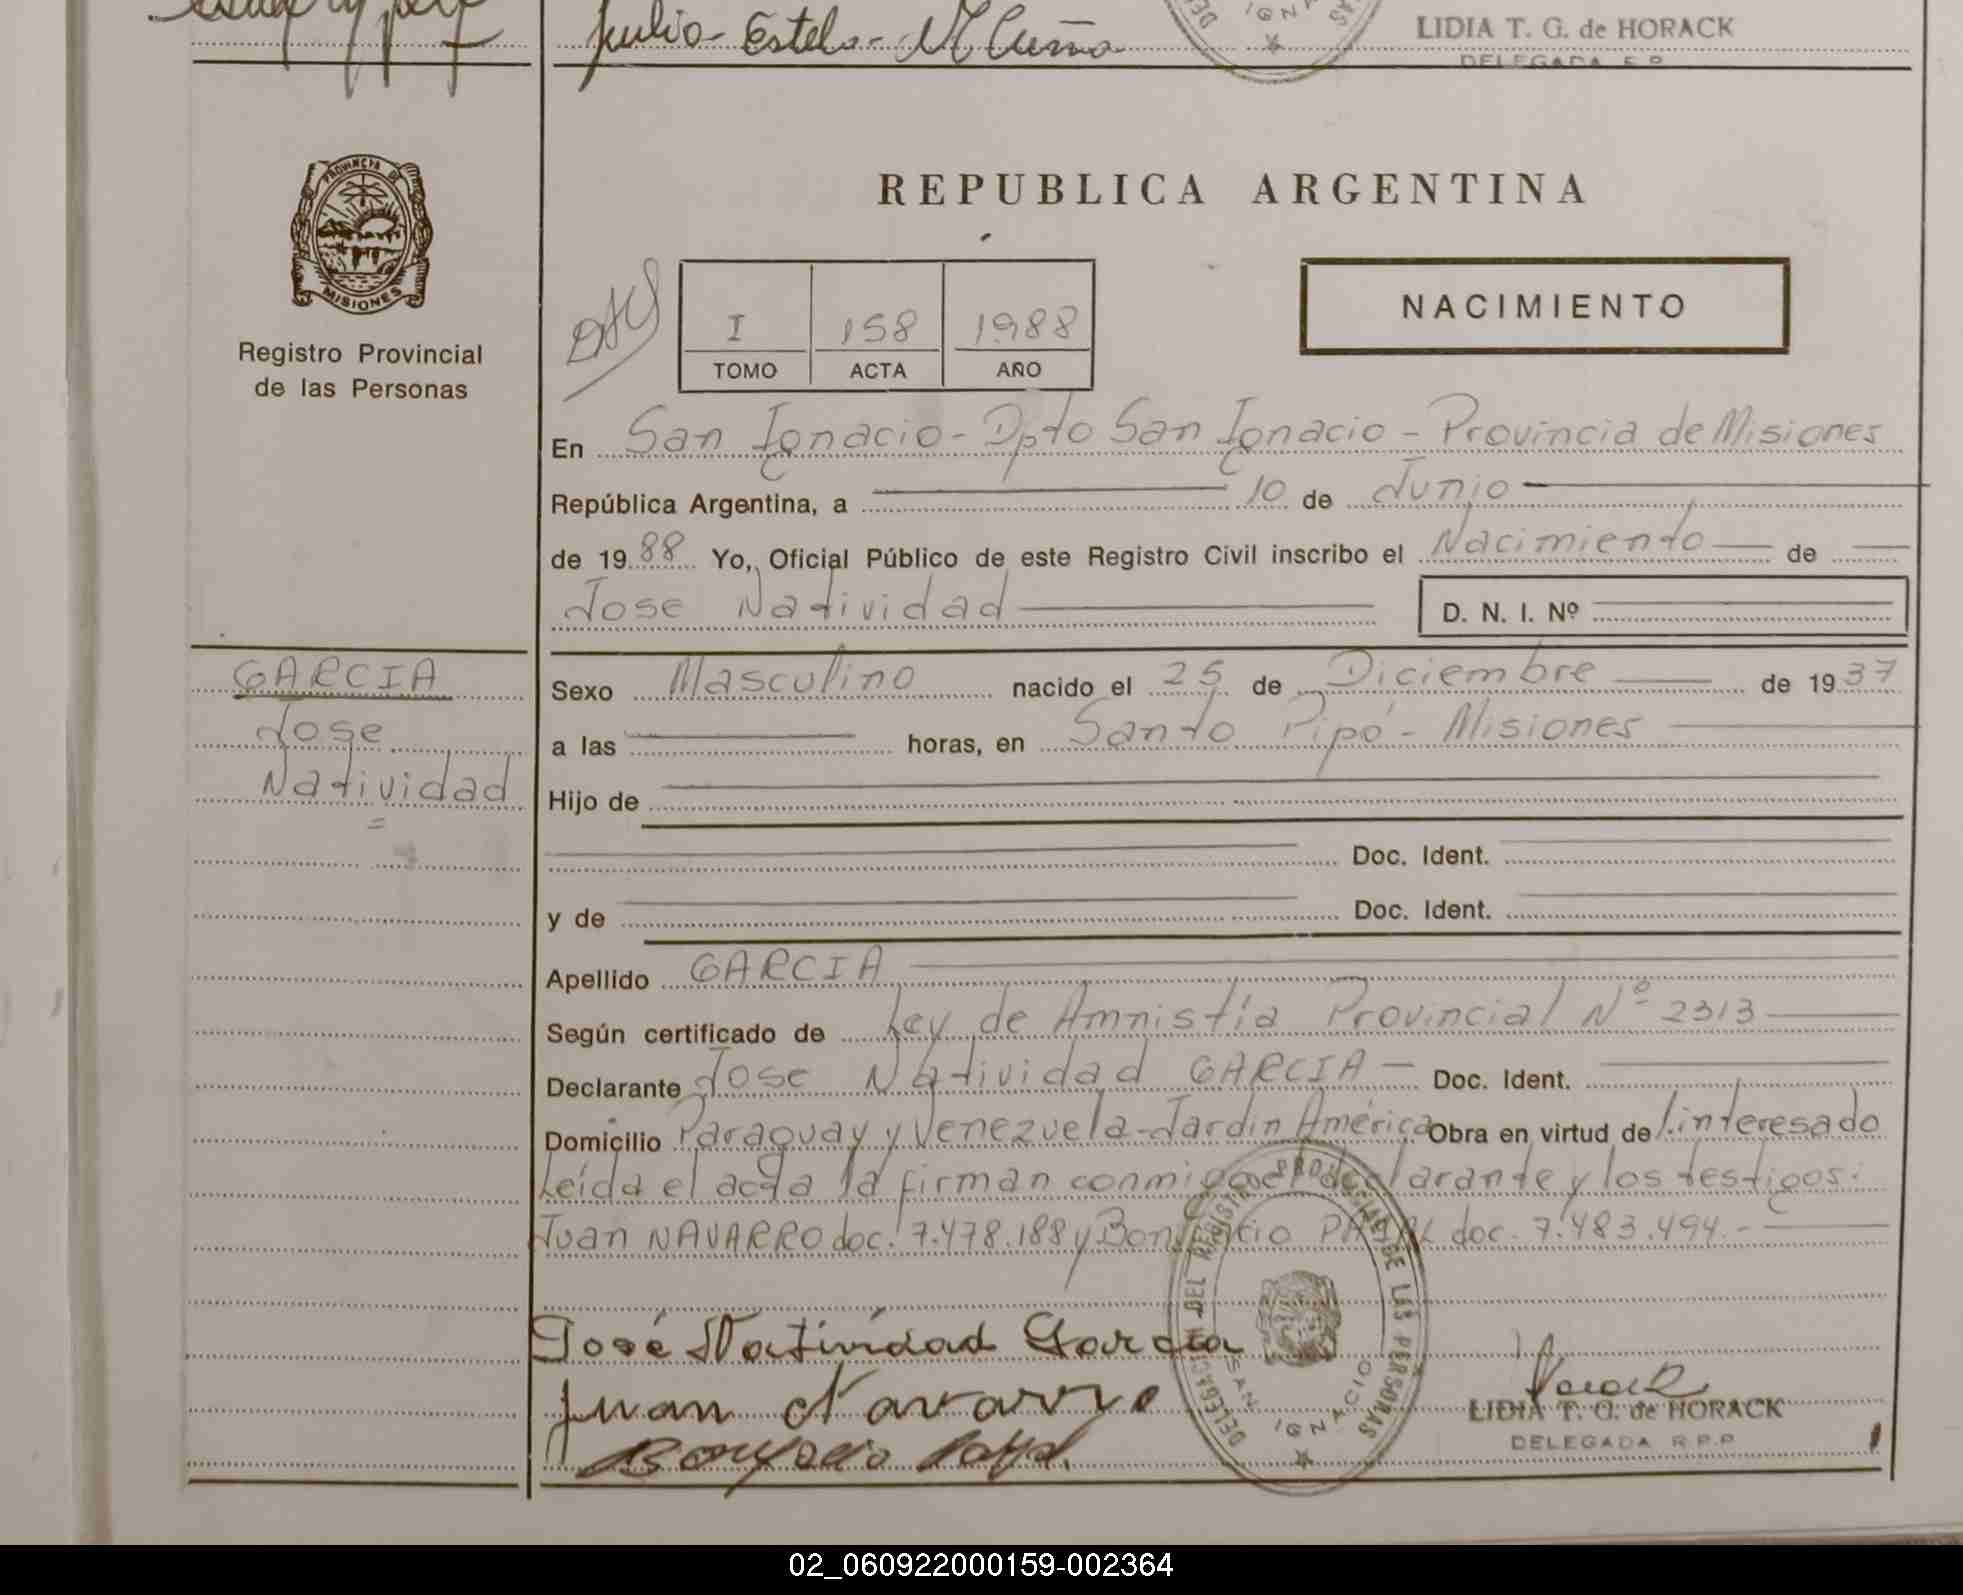 Julia Estela N Cuña
LIDIA T. G. de HORACK
DELEGADA
PROVINCIA DE
MISIONES
Registro Provincial
de las Personas
REPUBLICA ARGENTINA
I 158 1988
TOMO ACTA AÑO
NACIMIENTO
En San Ignacio - Dpto San Ignacio - Provincia de Misiones
República Argentina, a 10 de Junio
de 19 88 Yo, Oficial Público de este Registro Civil inscribo el Nacimiento de
Jose Natividad D. N. I. Nº
GARCIA
Jose
Natividad
Sexo Masculino nacido el 25 de Diciembre de 19 37
a las horas, en Santo Pipó - Misiones
Hijo de
Doc. Ident.
y de Doc. Ident.
Apellido GARCIA
Según certificado de Ley de Amnistía Provincial Nº 2313
Declarante Jose Natividad GARCIA - Doc. Ident.
Domicilio Paraguay y Venezuela - Jardin América Obra en virtud de l.interesado
Leída el acta la firman conmigo el declarante y los testigos:
Juan NAVARRO doc. 7.478.188 y Bonifacio doc. 7.483.494.-
José Natividad Garcia
Juan Navarro
Bonifacio
DELEGACION DEL REGISTRO PROVINCIAL DE LAS PERSONAS
SAN IGNACIO
LIDIA T. G. de HORACK
DELEGADA R.P.P
02_060922000159-002364